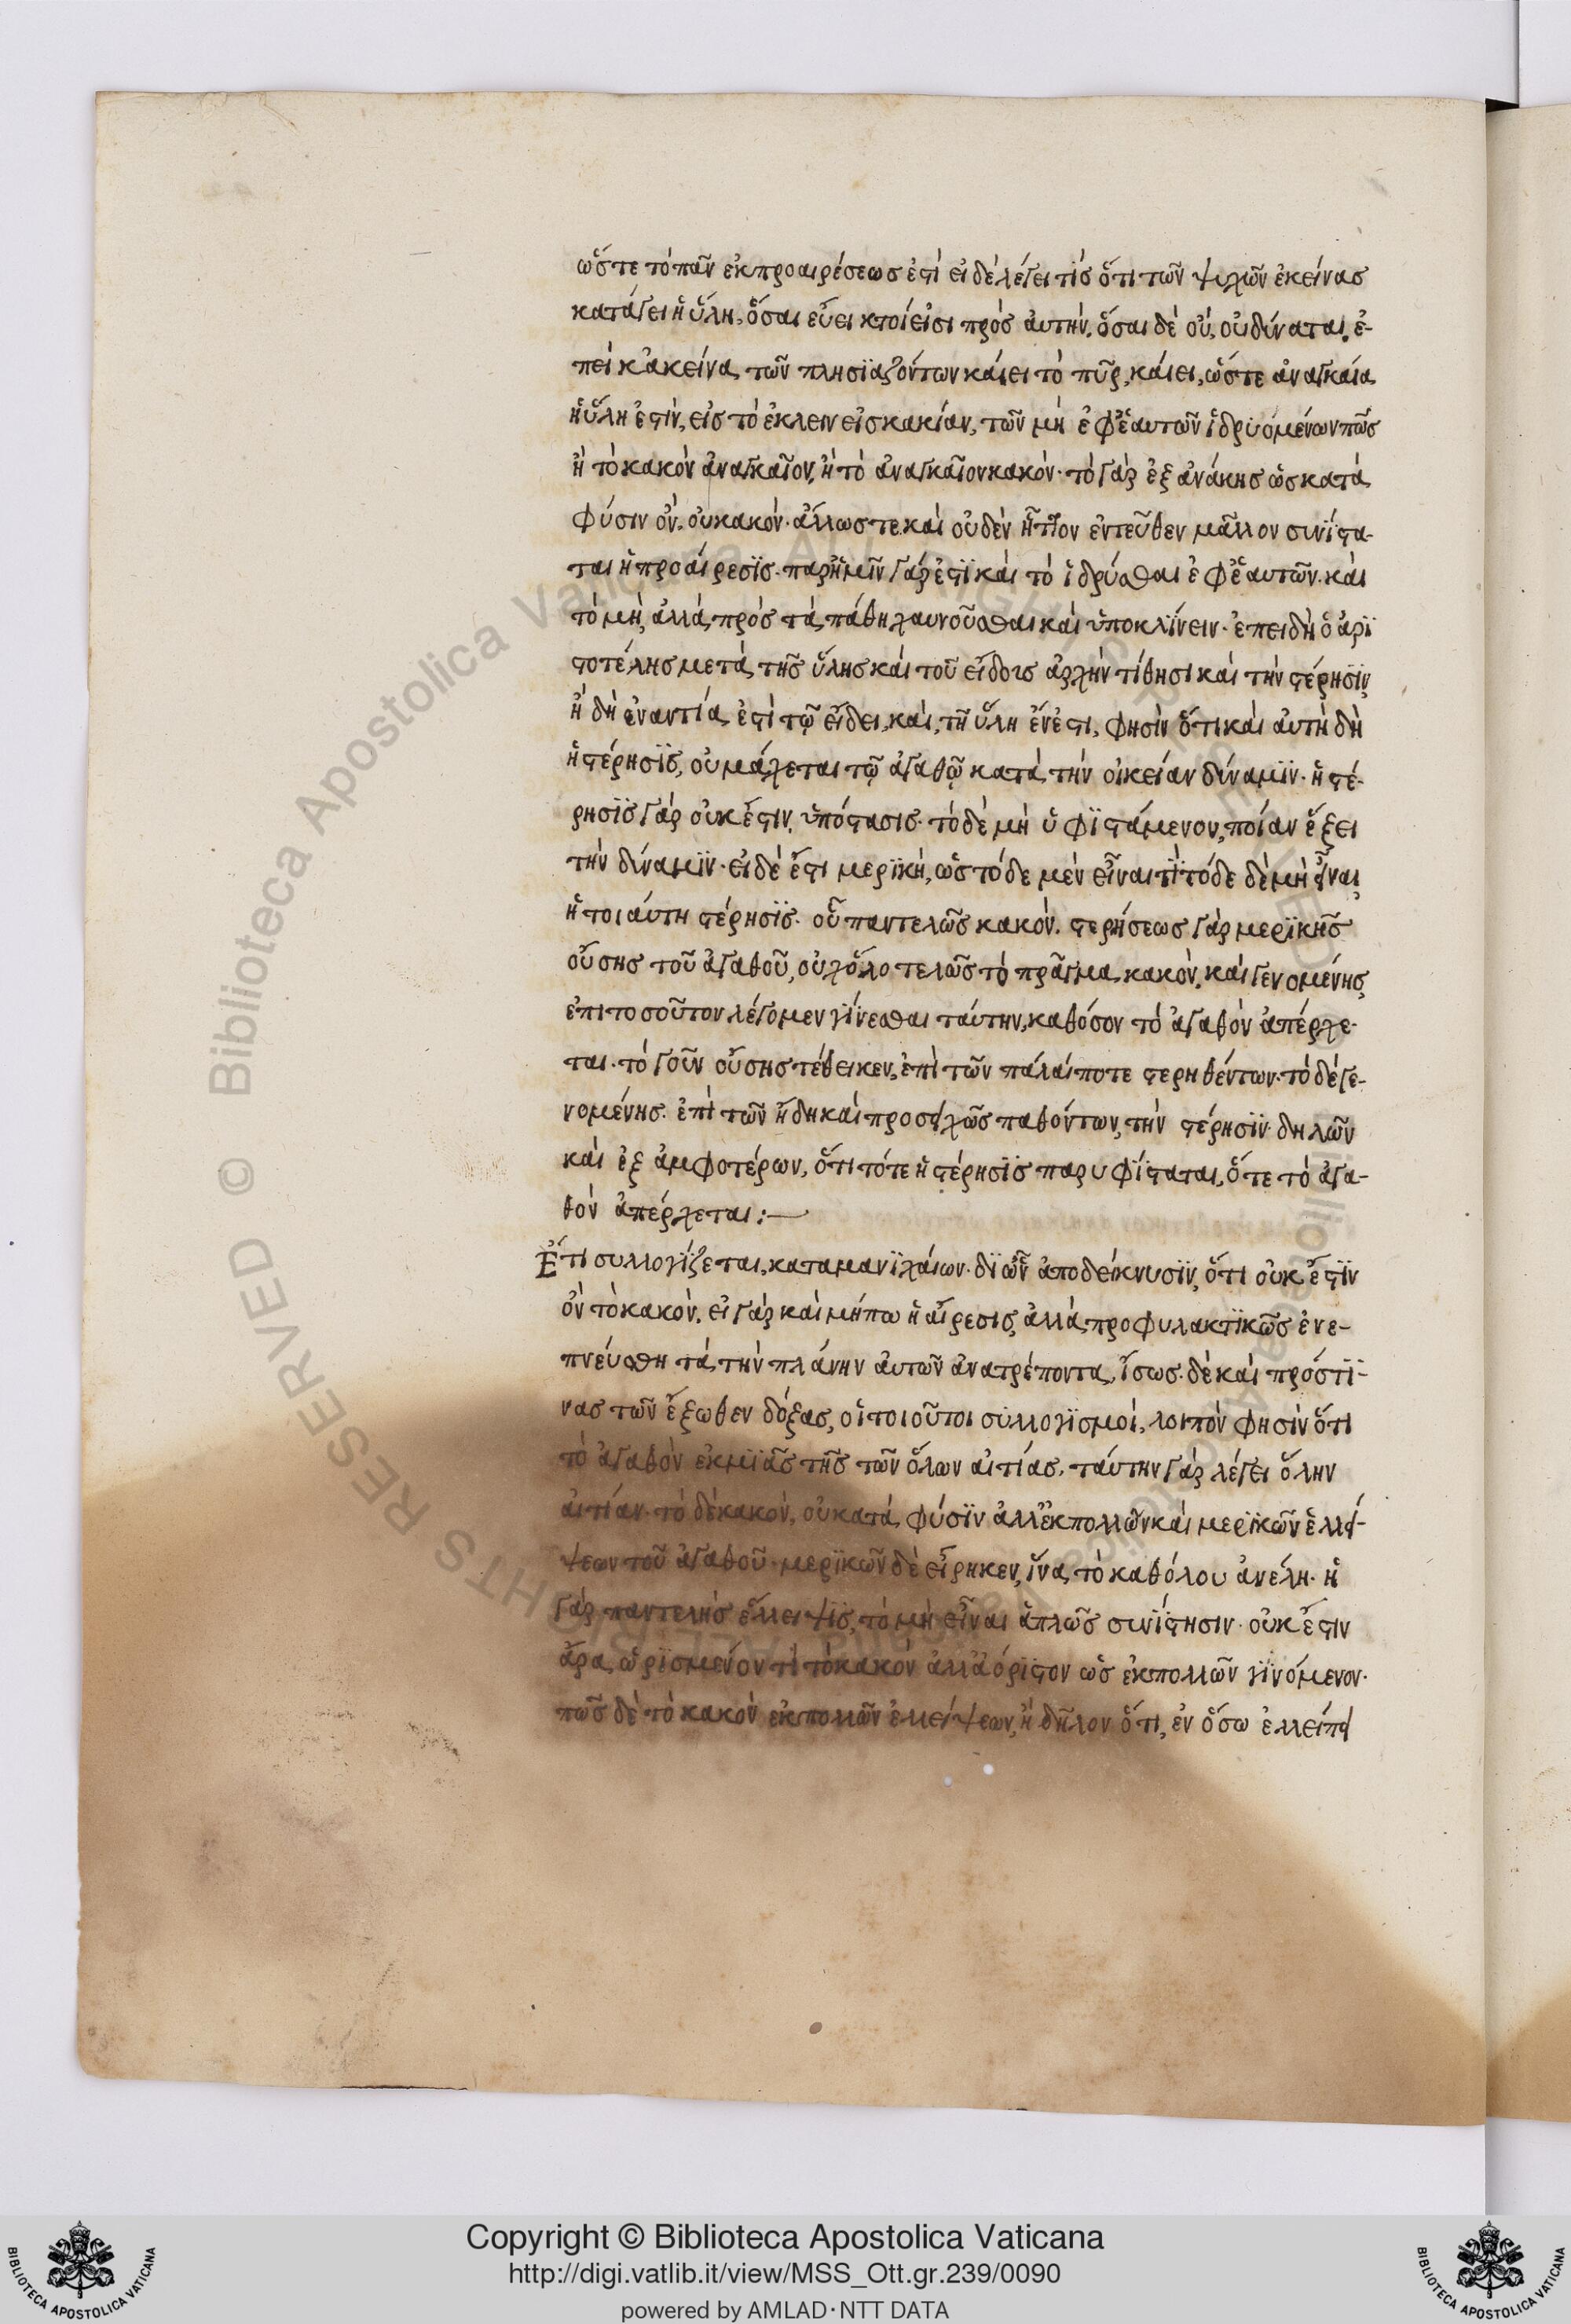 ὥστε τὸ πᾶν ἐκ προαιρέσεως ἐστί εἰ δὲ λέγει τίς ὅτι τῶν ψυχῶν ἐκείνας
κατάγει ἡ ὕλη, ὅσαι εὔεικτοί εἰσι πρὸς ἀυτὴν, ὅσαι δὲ οὐ, οὐ δύναται, ἐ-
πεὶ κἀκείνα τῶν πλησϊαζόντων κάιει τὸ πῦρ, κάιει, ὥστε ἀναγκαία
ἡ ὕλη ἐστὶν, εἰς τὸ ἐκλειν εἰς κακίαν, τῶν μὴ ἐφ' ἑαυτῶν ἱδρυομένων πῶς
ἢ τὸ κακὸν ἀναγκαῖον, ἢ τὸ ἀναγκαῖον κακόν· τὸ γὰρ ἐξ ἀνάκης ὡς κατὰ
φύσιν ὂν, οὐ κακόν· ἄλλωστε καὶ οὐδὲν ἧττον ἐντεῦθεν μᾶλλον συνίστα-
ται ἡ προάιρεσϊς· παρ' ἡμῖν γάρ ἐστϊ καὶ τὸ ἱδρύσθαι ἐφ' ἑαυτῶν· καὶ
τὸ μὴ, ἀλλὰ πρὸς τὰ πάθη χαυνοῦσθαι καὶ ὑποκλίνειν· ἐπειδὴ ὁ ἀρϊ
στοτέλης μετὰ τῆς ὕλης καὶ τοῦ εἴδους ἀρχὴν τίθησι καὶ τὴν στέρησϊν,
ἣ δὴ ἐναντία ἐστὶ τῷ εἴδει, καὶ, τῇ ὕλη ἔνεστι, φησὶν ὅτι καὶ ἀυτὴ δὴ
ἡ στέρησϊς, οὐ μάχεται τῷ ἀγαθῷ κατὰ τὴν οἰκείαν δύναμϊν· ἡ στέ-
ρησϊς γὰρ οὐκ ἔστιν, ὑπόστασις· τὸ δὲ μὴ ὑφϊστάμενον, ποίαν ἕξει
τὴν δύναμϊν· εἰ δὲ ἔστι μερϊκὴ, ὡς τόδε μὲν εἶναι τῒ τόδε δὲ μὴ εἶναι,
ἡ τοιάυτη στέρησϊς· οὗ παντελῶς κακόν. στερήσεως γὰρ μερϊκῆς
οὔσης τοῦ ἀγαθοῦ, οὐχ ὁλοτελῶς τὸ πρᾶγμα κακὸν, καὶ γενομένης,
ἐπι τοσοῦτον λέγομεν γίνεσθαι ταύτην, καθόσον τὸ ἀγαθὸν ἀπέρχε-
ται· τὸ γοῦν οὔσης τέθεικεν, ἐπὶ τῶν πάλαί ποτε στερηθέντων· τὸ δὲ γε-
νομένης· ἐπὶ τῶν ἤδη καὶ προσεχῶς παθόντων, τὴν στέρησϊν· δηλῶν
καὶ ἐξ ἀμφοτέρων, ὅτι τότε ἡ στέρησϊς παρυφίσταται, ὅτε τὸ ἀγα-
θὸν ἀπέρχεται:—
Ἔτι συλλογίζεται, κατα μανϊχάιων· δϊ ὧν ἀποδείκνυσϊν, ὅτι οὐκ ἔστϊν
ὂν τὸ κακὸν, εἰ γὰρ καὶ μήπω ἡ αἵρεσις, ἀλλὰ προφυλακτϊκῶς ἐνε-
πνέυσθη τὰ τὴν πλάνην ἀυτῶν ἀνατρέποντα, ἴσως δὲ καὶ πρός τϊ-
νας τῶν ἔξωθεν δόξας, οἱ τοιοῦτοι συλλογϊσμοὶ, λοιπὸν φησὶν ὅτι
τὸ ἀγαθὸν ἐκ μϊᾶς τῆς τῶν ὅλων αἰτίας, ταύτην γὰρ λέγει ὅλην
ἀιτίαν· τὸ δὲ κακὸν, οὐ κατὰ φύσϊν ἀλλ' ἐκ πολλῶν καὶ μερϊκῶν ἐλλεί-
ψεων τοῦ ἀγαθοῦ· μερϊκῶν δὲ εἴρηκεν, ἵνα τὸ καθόλου ἀνέλη· ἡ
γὰρ παντελὴς ἔλλειψϊς, τὸ μὴ εἶναι ἁπλῶς συνίστησιν· οὐκ ἔστιν
ἄρα, ὡρϊσμένον τὶ τὸ κακὸν ἀλλ' ἀόρϊστον ὡς ἐκ πολλῶν γϊνόμενον·
πῶς δὲ τὸ κακὸν ἐκ πολλῶν ἐλλείψεων, ἢ δῆλον ὅτι, ἐν ὅσω ἐλλείπει
Copyright © Biblioteca Apostolica Vaticana
http://digi.vatlib.it/view/MSS_Ott.gr.239/0090
powered by AMLAD·NTT DATA